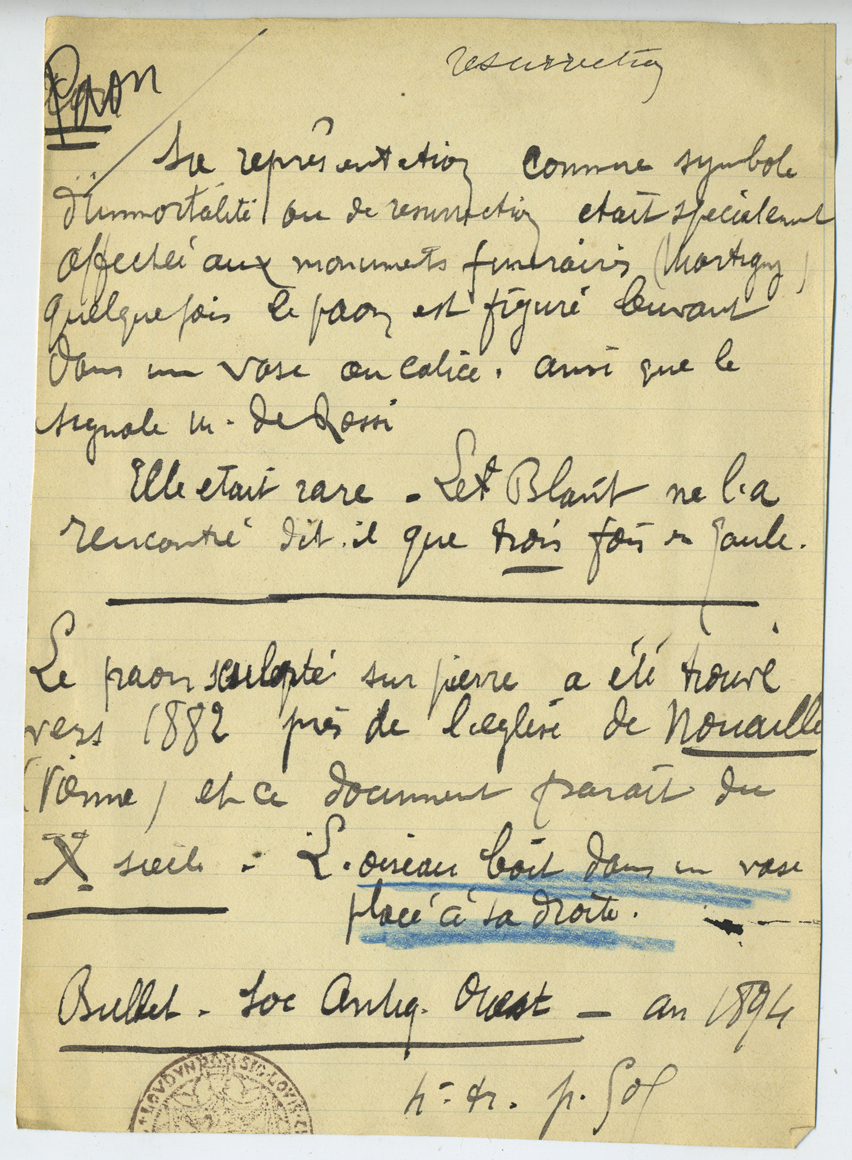 resurrection
Paon
Sa représentation comme symbole
d'immortalité ou de resurrection etait spécialement
affectée aux monuments funeraires (Martigny)
quelquefois le paon est figuré buvant
dans un vase ou calice. ainsi que le
signale M. de Rossi
Elle etait rare - Blant ne l'a
rencontré dit.il que trois fois en Gaule.
Le paon sculpté sur pierre a été trouvé
vers 1882 près de l'eglise de Nouaillé
(Vienne) et ce document parait du
X siecle - L'oiseau boit dans un vase
placé à sa droite.
Bullet. Soc Antiq. Ouest - an 1894
p.
LOVDVN